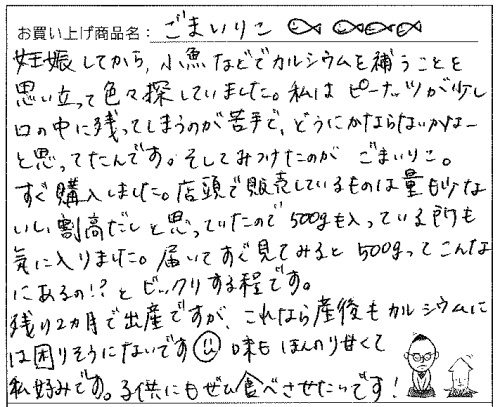 お買い上げ商品名: ごまいりこ
妊娠してから、小魚などでカルシウムを補うことを
思い立って色々探していました。私は ピーナッツが少し
口の中に残ってしまうのが苦手で、どうにかならないかなー
と思ってたんです。そしてみつけたのが ごまいりこ。
すぐ購入しました。店頭で販売しているものは量も少な
いし、割高だしと思っていたので500gも入っている所も
気に入りました。届いてすぐ見てみると500gってこんな
にあるの!?とビックリする程です。
残り2カ月で出産ですが、これなら産後もカルシウムに
は困りそうにないです 味もほんのり甘くて
私好みです。子供にもぜひ食べさせたいです!